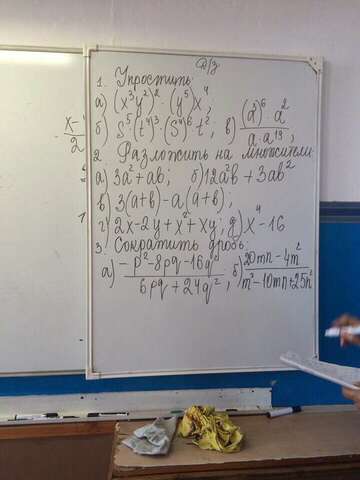 Д/з
1. Упростить:
а) (x³y²)²·(y⁵)x⁴;
б) S⁵(t⁴)³·(S⁴)⁶t²; в) (a³)⁶·a² / a·a¹⁹;
2. Разложить на множители:
а) 3a²+ab; б) 12a²b+3ab²
в) 3(a+b)-a(a+b);
г) 2x-2y+x²+xy; д) x⁴-16
3. Сократить дробь:
а) -p²-8pq-16q² / 6pq+24q²; б) 20mn-4m² / m²-10mn+25n²
x-
2